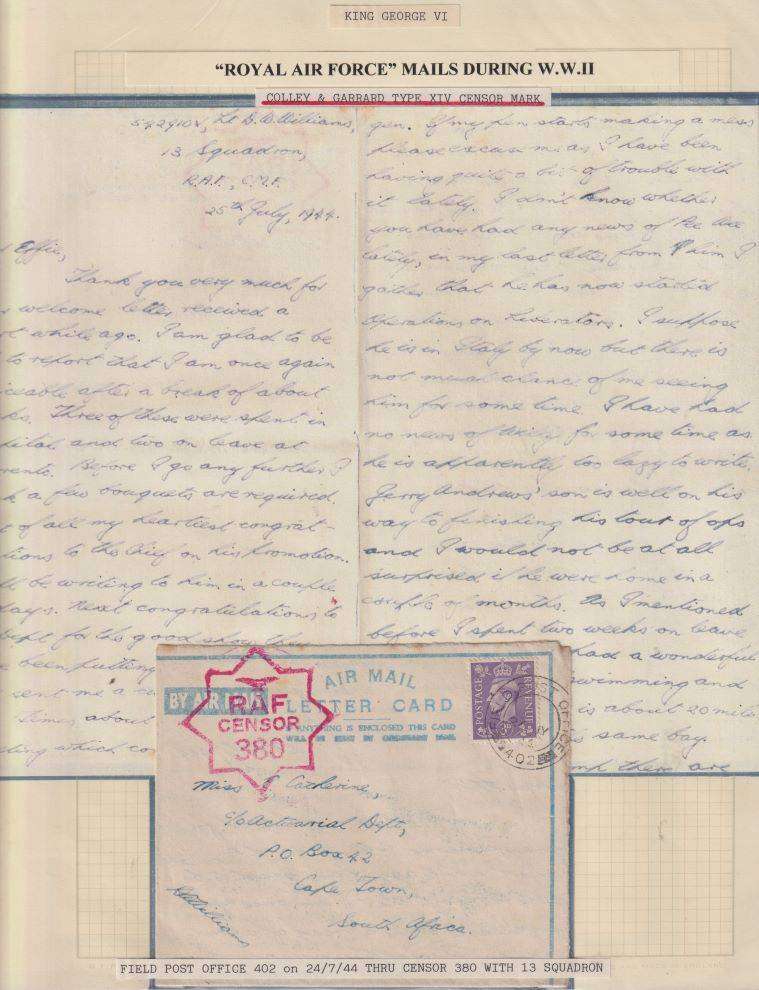 KING GEORGE VI
“ROYAL AIR FORCE” MAILS DURING W.W.II
COLLEY & GARRARD TYPE XIV CENSOR MARK
Lt D. W. Williams,
13 Squadron,
R.A.F., C.M.F.
25th July, 1944.
Effie,
Thank you very much for
welcome letter received a
rt while ago. I am glad to be
to report that I am once again
iceable after a break of about
ks. Three of these were spent in
pital and two on leave at
rento. Before I go any further I
a few bouquets are required.
t of all my heartiest congrat-
tions to the Chief on his promotion.
ll be writing to him in a couple
days. Next congratulations to
for the good show
been putting
sent me a
Times about
ding which
gen. If my pen starts making a mess
please excuse me as I have been
having quite a bit of trouble with
it lately. I don't know whether
you have had any news of
lately, in my last letter from him I
gather that he has now started
operations on Liberators. I suppose
he is in Italy by now but there is
not much chance of me seeing
him for some time. I have had
no news of for some time as
he is apparently too lazy to write.
Jerry Andrews' son is well on his
way to finishing his tour of ops
and I would not be at all
surprised if he were home in a
couple of months. As I mentioned
before I spent two weeks on leave
had a wonderful
swimming and
is about 20 mile
same bay.
there are
BY AIR MAIL
AIR MAIL
LETTER CARD
IF ANYTHING IS ENCLOSED THIS CARD
WILL BE SENT BY ORDINARY MAIL
RAF
CENSOR
380
POSTAGE
REVENUE
3D
OFFICE
402
Miss Catherine,
c/o Actuarial Dept,
P.O. Box 42
Cape Town,
South Africa.
DWWilliams
FIELD POST OFFICE 402 on 24/7/44 THRU CENSOR 380 WITH 13 SQUADRON